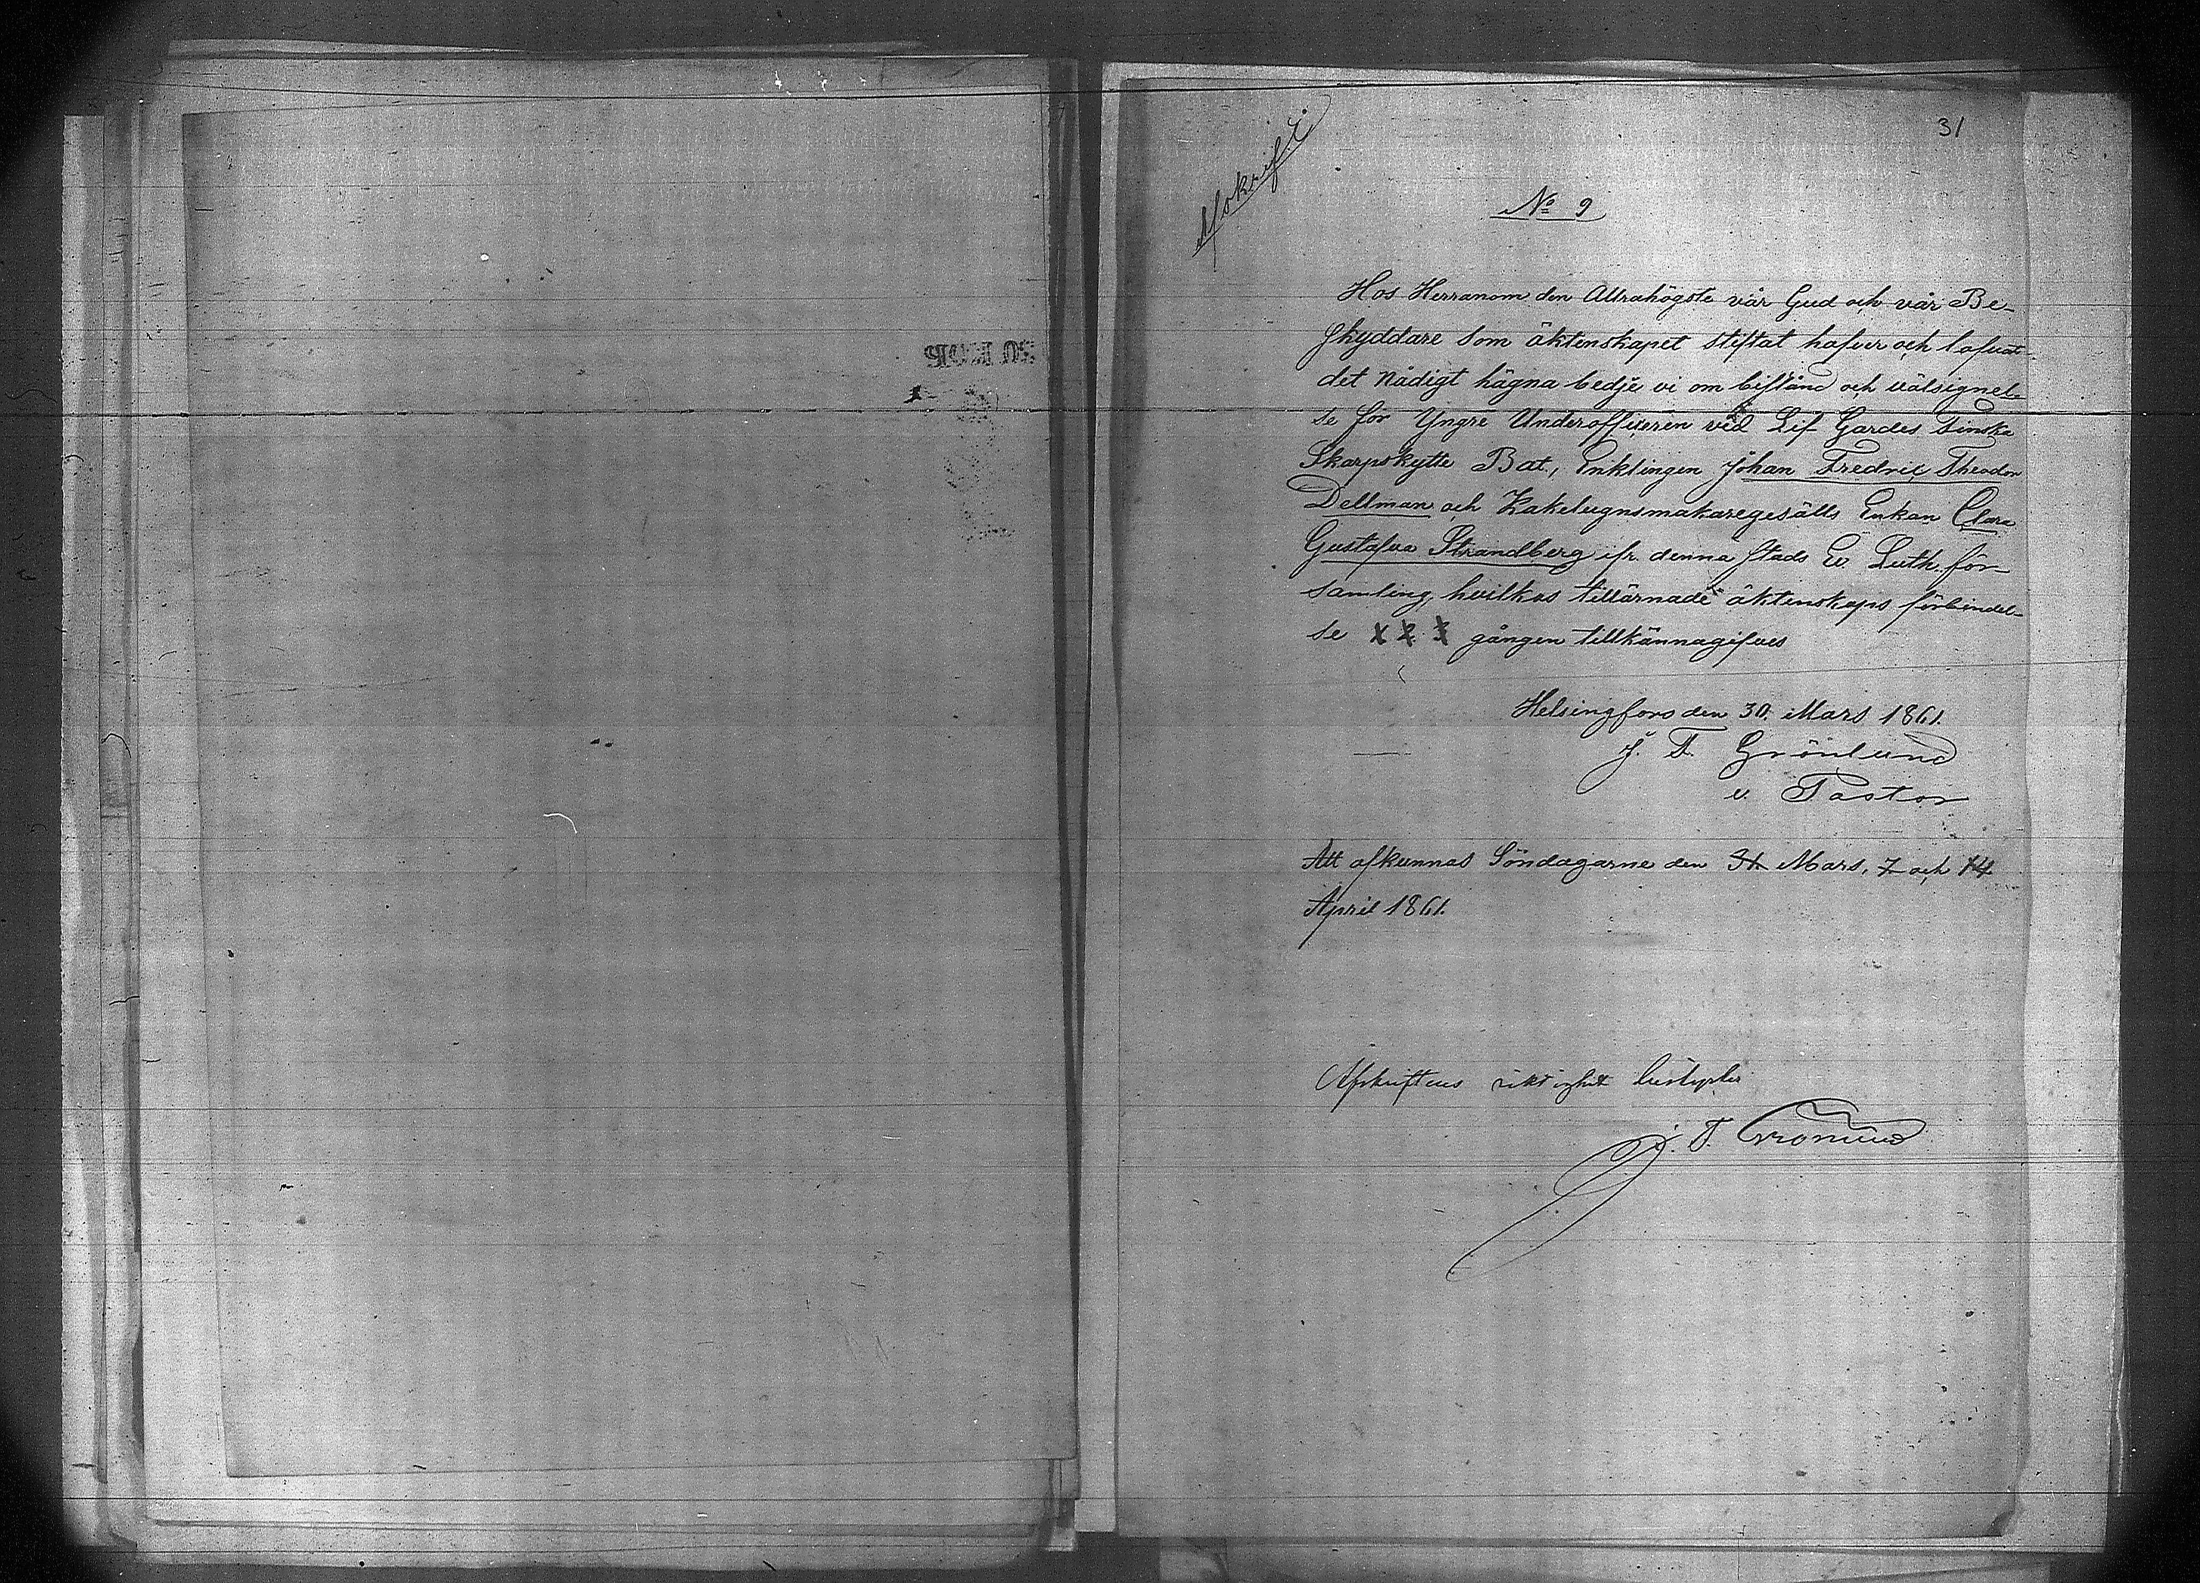 31
Afskrift.
No 9
Hos Herranom den Allrahögste vår Gud och vår Be-
skyddare som äktenskapet stiftat hafver och lofvat
det nådigt hägna bedje vi om bistånd och välsignel-
se för Yngre Underofficeren vid Lif Gardes Finska
Skarpskytte Bat., Enklingen Johan Fredric Theodor
Dellman och Kakelugnsmakaregesälls Enkan Clara
Gustafva Strandberg ifr. denna stads Ev. Luth. för-
samling, hvilkas tillärnade äktenskaps förbindel-
se 1 2 3 gången tillkännagifves
Helsingfors den 30. Mars 1861.
J. F. Grönlund
v. Pastor
Att afkunnas Söndagarne den 31 Mars, 7 och 14
April 1861.
Afskriftens riktighet bestyrker
J. F. Grönlund